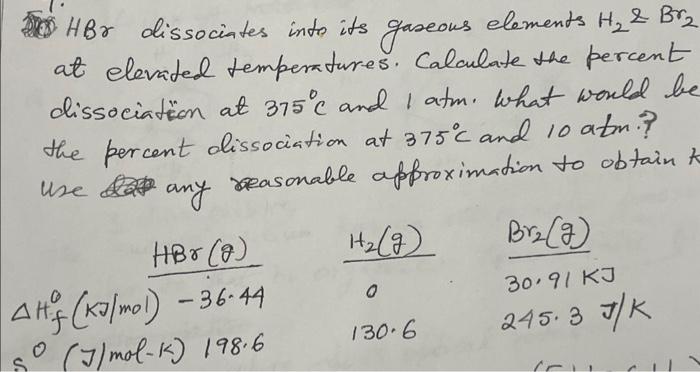 HBr dissociates into its gaseous elements H₂ & Br₂
at elevated temperatures. Calculate the percent
dissociation at 375°C and 1 atm. What would be
the percent dissociation at 375°C and 10 atm.?
Use any reasonable approximation to obtain
HBr(g) H₂(g) Br₂(g)
ΔH°f (KJ/mol) -36.44 0 30.91 KJ
S° (J/mol-K) 198.6 130.6 245.3 J/K